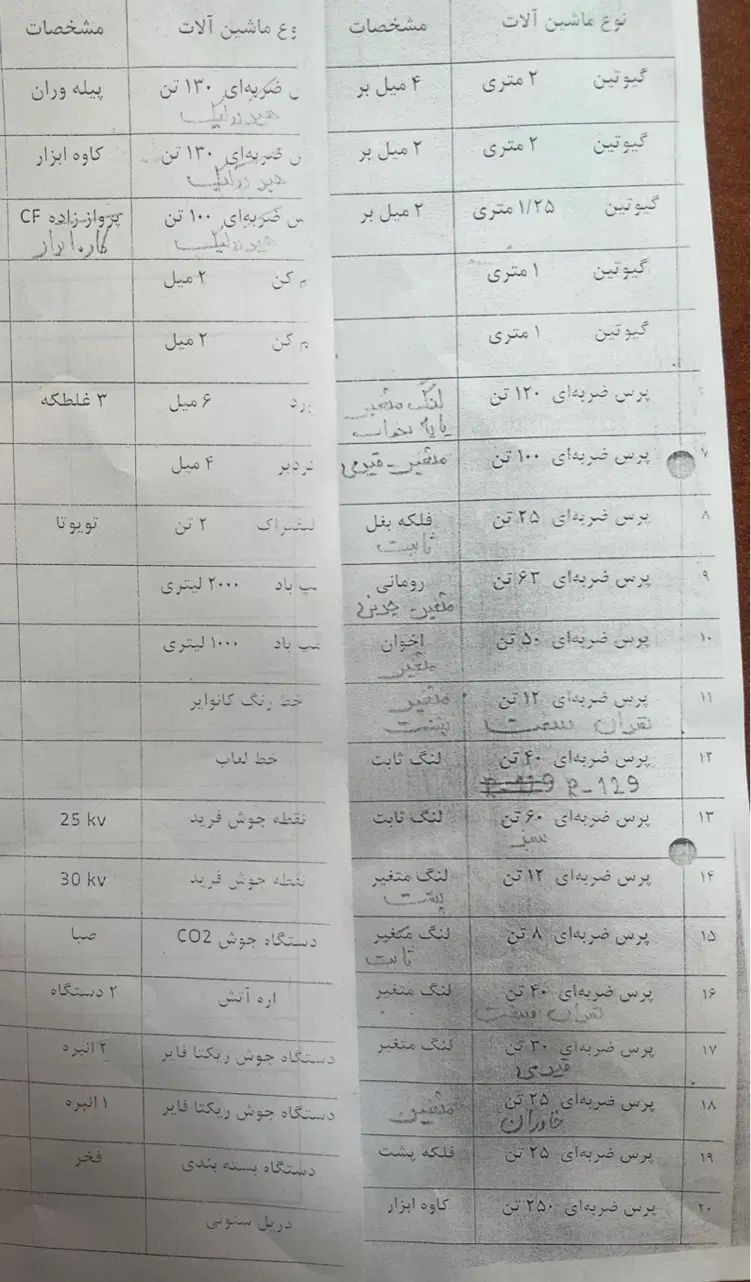 نوع ماشین آلات مشخصات
گیوتین ۲ متری ۴ میل بر
گیوتین ۲ متری ۲ میل بر
گیوتین ۱/۲۵ متری ۲ میل بر
گیوتین ۱ متری
گیوتین ۱ متری
پرس ضربه‌ای ۱۲۰ تن لنگ متغیر
۷ پرس ضربه‌ای ۱۰۰ تن متغیر - قدیمی
۸ پرس ضربه‌ای ۲۵ تن فلکه بغل
ثابت
۹ پرس ضربه‌ای ۶۳ تن رومانی
متغیر جدید
۱۰ پرس ضربه‌ای ۵۰ تن اخوان
متغیر
۱۱ پرس ضربه‌ای ۱۲ تن متغیر
تهران صنعت پشت
۱۲ پرس ضربه‌ای ۴۰ تن لنگ ثابت
R-129
۱۳ پرس ضربه‌ای ۶۰ تن لنگ ثابت
سبز
۱۴ پرس ضربه‌ای ۱۲ تن لنگ متغیر
پشت
۱۵ پرس ضربه‌ای ۸ تن لنگ متغیر
ثابت
۱۶ پرس ضربه‌ای ۴۰ تن لنگ متغیر
تهران صنعت
۱۷ پرس ضربه‌ای ۳۰ تن لنگ متغیر
قدیمی
۱۸ پرس ضربه‌ای ۲۵ تن متغیر
خاوران
۱۹ پرس ضربه‌ای ۲۵ تن فلکه پشت
۲۰ پرس ضربه‌ای ۲۵۰ تن کاوه ابزار
وع ماشین آلات مشخصات
س ضربه‌ای ۱۳۰ تن پیله وران
هیدرولیک
س ضربه‌ای ۱۳۰ تن کاوه ابزار
هیدرولیک
س ضربه‌ای ۱۰۰ تن پرواز زاده CF
هیدرولیک کاوه ابزار
م کن ۲ میل
م کن ۲ میل
ورد ۶ میل ۳ غلطکه
گردبر ۴ میل
لیفتراک ۲ تن تویوتا
مپ باد ۲۰۰۰ لیتری
مپ باد ۱۰۰۰ لیتری
خط رنگ کانوایر
خط لعاب
نقطه جوش فرید 25 kv
نقطه جوش فرید 30 kv
دستگاه جوش CO2 صبا
اره آتش ۲ دستگاه
دستگاه جوش ریکتا فایر ۲ انبره
دستگاه جوش ریکتا فایر ۱ انبره
دستگاه بسته بندی فخر
دریل ستونی